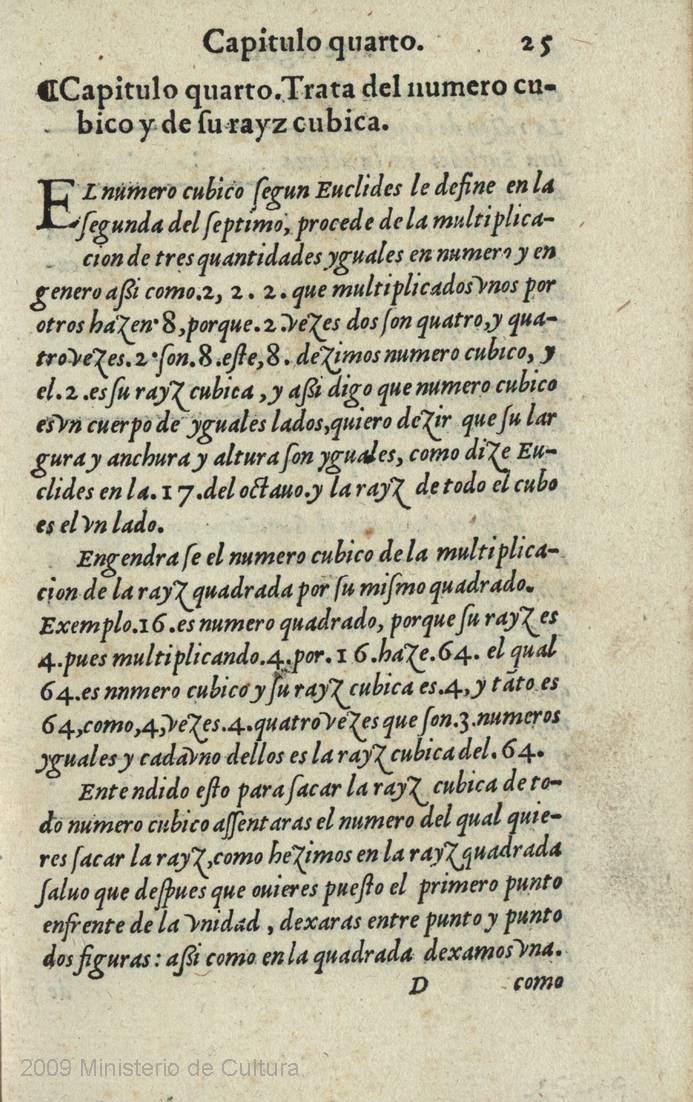 Capitulo quarto. 25
¶Capitulo quarto.Trata del numero cu-
bico y de ſu rayz cubica.
EL numero cubico ſegun Euclides le define en la
ſegunda del ſeptimo, procede de la multiplica-
cion de tres quantidades yguales en numero y en
genero aßi como.2, 2. 2. que multiplicados vnos por
otros hazen 8,porque.2.vezes dos ſon quatro,y qua-
tro vezes.2.ſon.8.eſte,8. dezimos numero cubico, y
el.2.es ſu rayz cubica ,y aßi digo que numero cubico
es vn cuerpo de yguales lados,quiero dezir que ſu lar
gura y anchura y altura ſon yguales, como dize Eu-
clides en la.17.del octauo.y la rayz de todo el cubo
es el vn lado.
Engendra ſe el numero cubico de la multiplica-
cion de la rayz quadrada por ſu miſmo quadrado.
Exemplo.16.es numero quadrado, porque ſu rayz es
4.pues multiplicando.4.por.16.haze.64. el qual
64.es nnmero cubico y ſu rayz cubica es.4,y tãto es
64,como,4,vezes.4.quatro vezes que ſon.3.numeros
yguales y cada vno dellos es la rayz cubica del.64.
Entendido eſto para ſacar la rayz cubica de to-
do numero cubico aſſentaras el numero del qual quie-
res ſacar la rayz,como hezimos en la rayz quadrada
ſaluo que deſpues que ouieres pueſto el primero punto
enfrente de la vnidad , dexaras entre punto y punto
dos figuras: aßi como en la quadrada dexamos vna.
D como
2009 Ministerio de Cultura